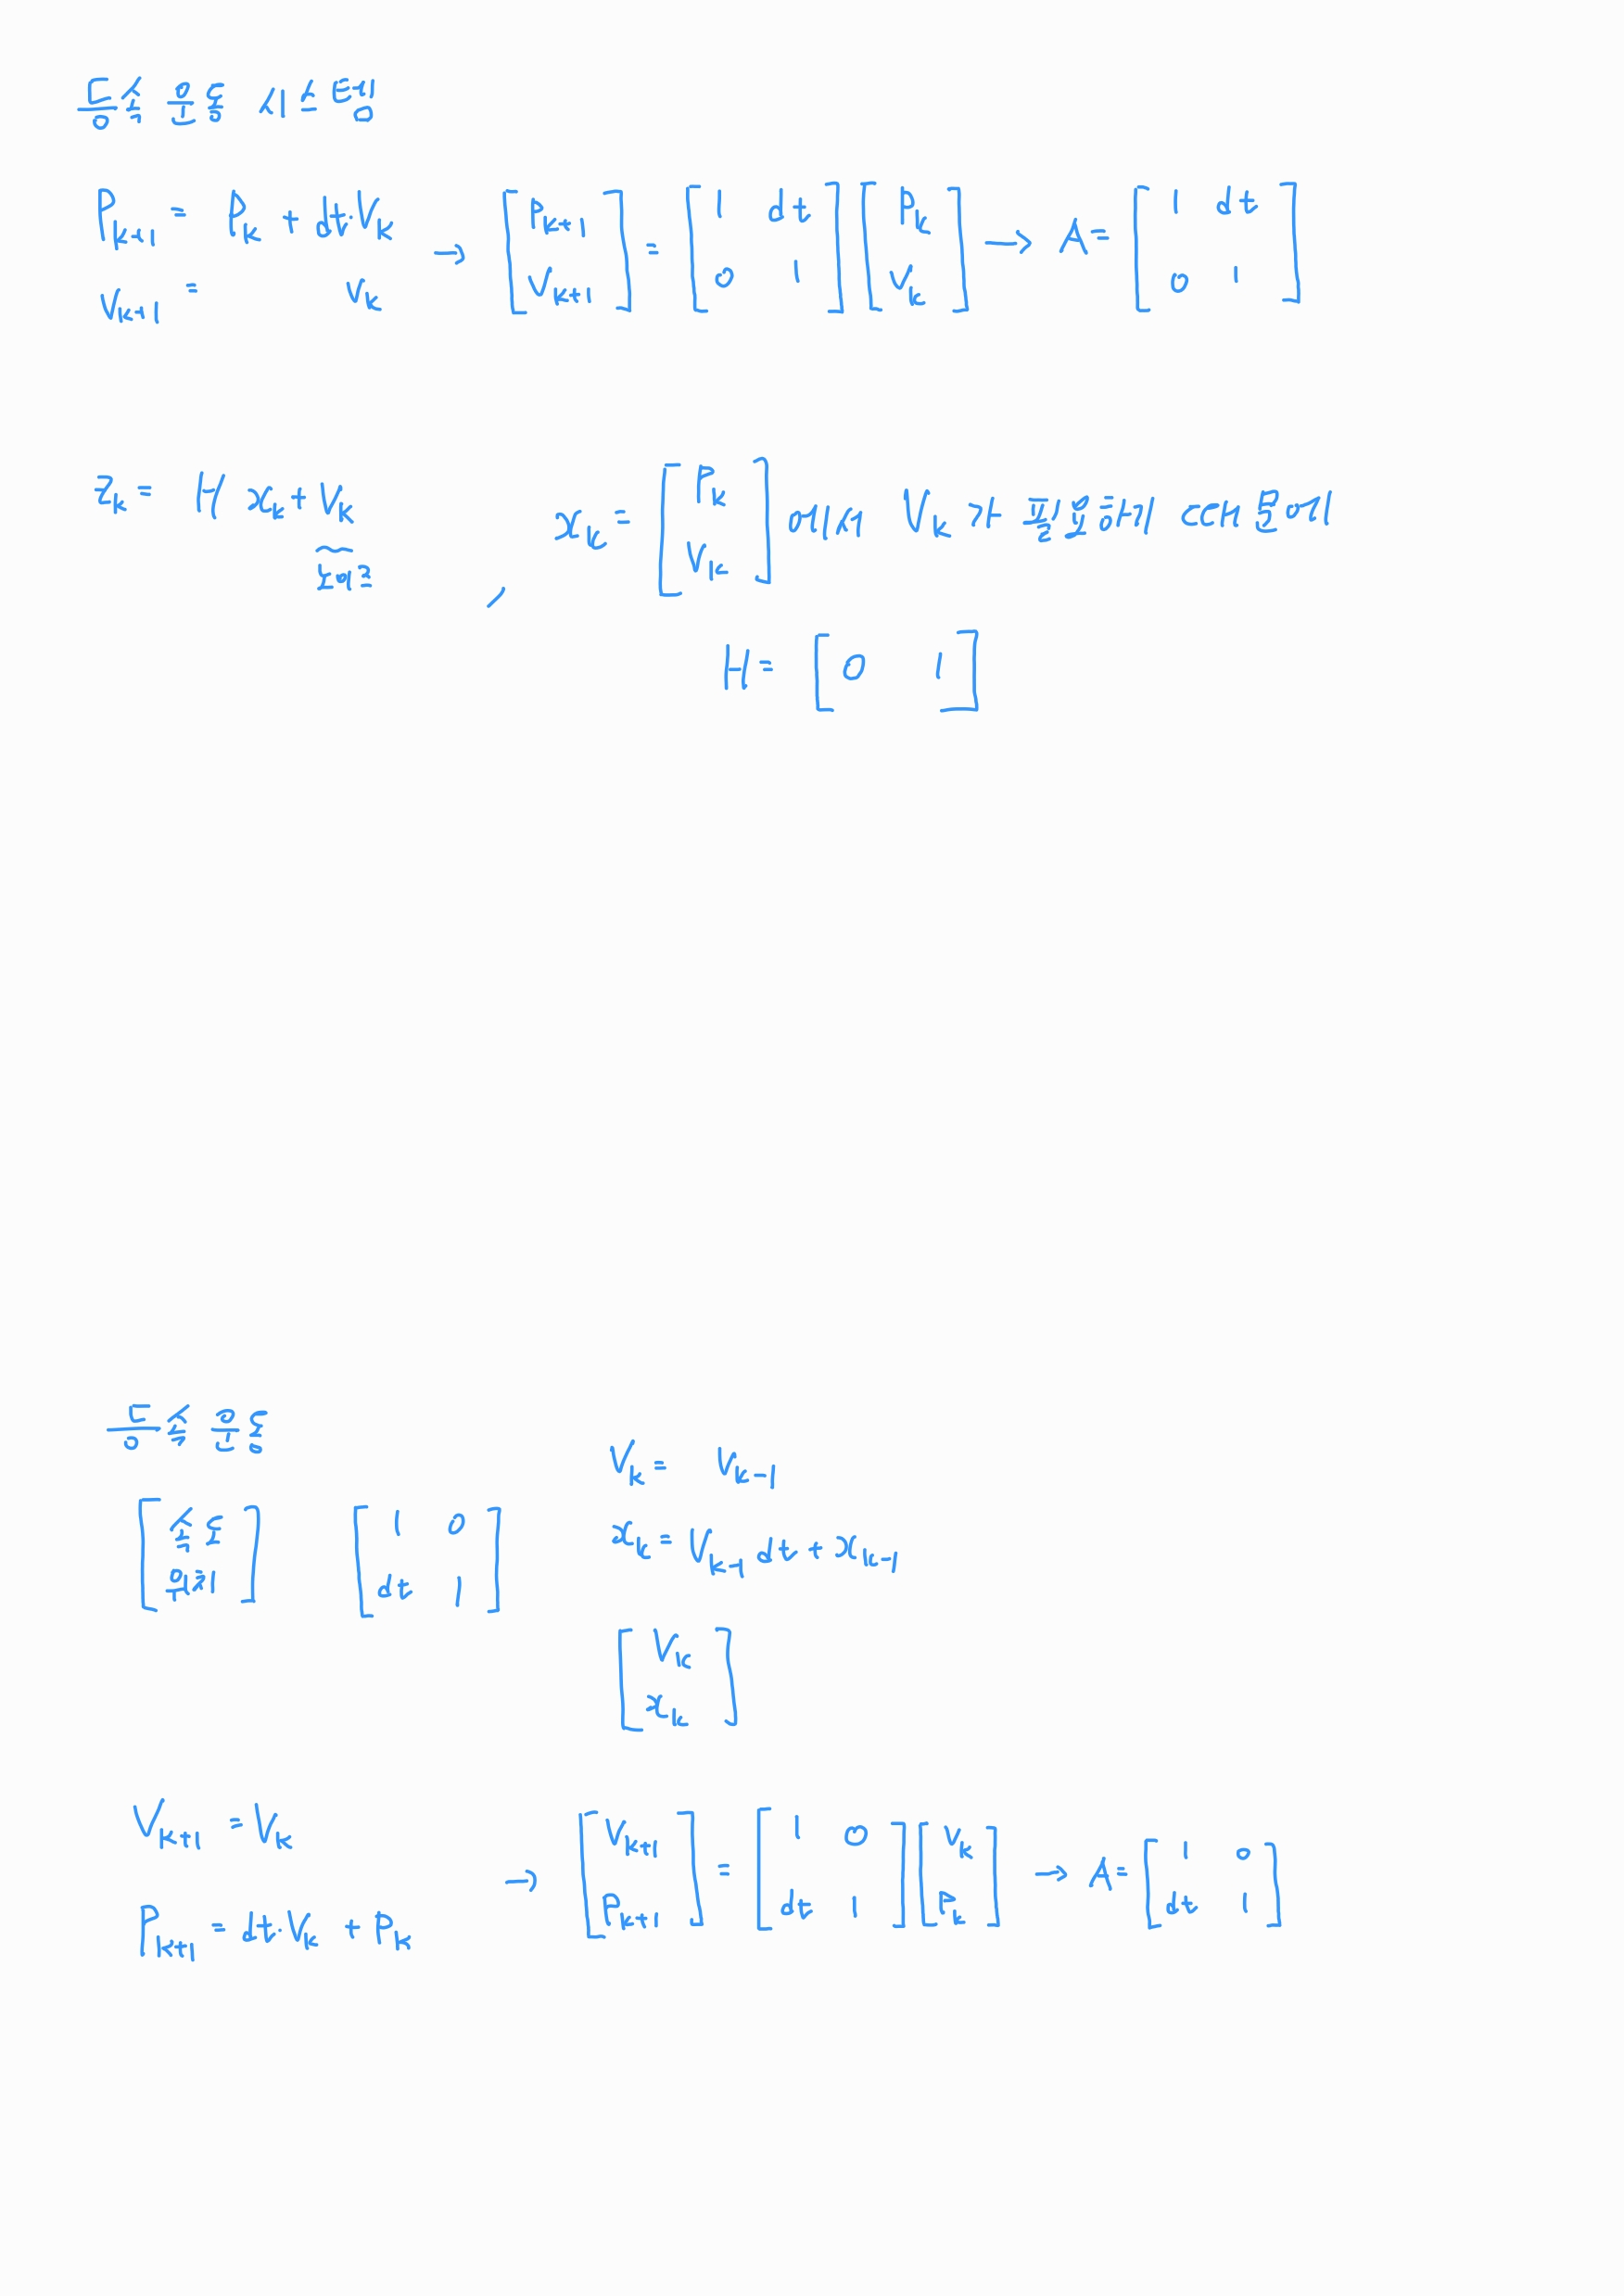 등속 운동 시스템
P_{k+1} = P_k + dt·V_k → [P_{k+1} ; V_{k+1}] = [1 dt ; 0 1] [P_k ; V_k] → A = [1 dt ; 0 1]
V_{k+1} = V_k
z_k = H x_k + V_k , x_k = [P_k ; V_k] 에서 V_k가 필요하기 때문에
노이즈
H = [0 1]
등속 운동
V_k = V_{k-1}
[속도 ; 위치] [1 0 ; dt 1]
x_k = V_{k-1} dt + x_{k-1}
[V_k ; x_k]
V_{k+1} = V_k
P_{k+1} = dt·V_k + P_k → [V_{k+1} ; P_{k+1}] = [1 0 ; dt 1] [V_k ; P_k] → A = [1 0 ; dt 1]